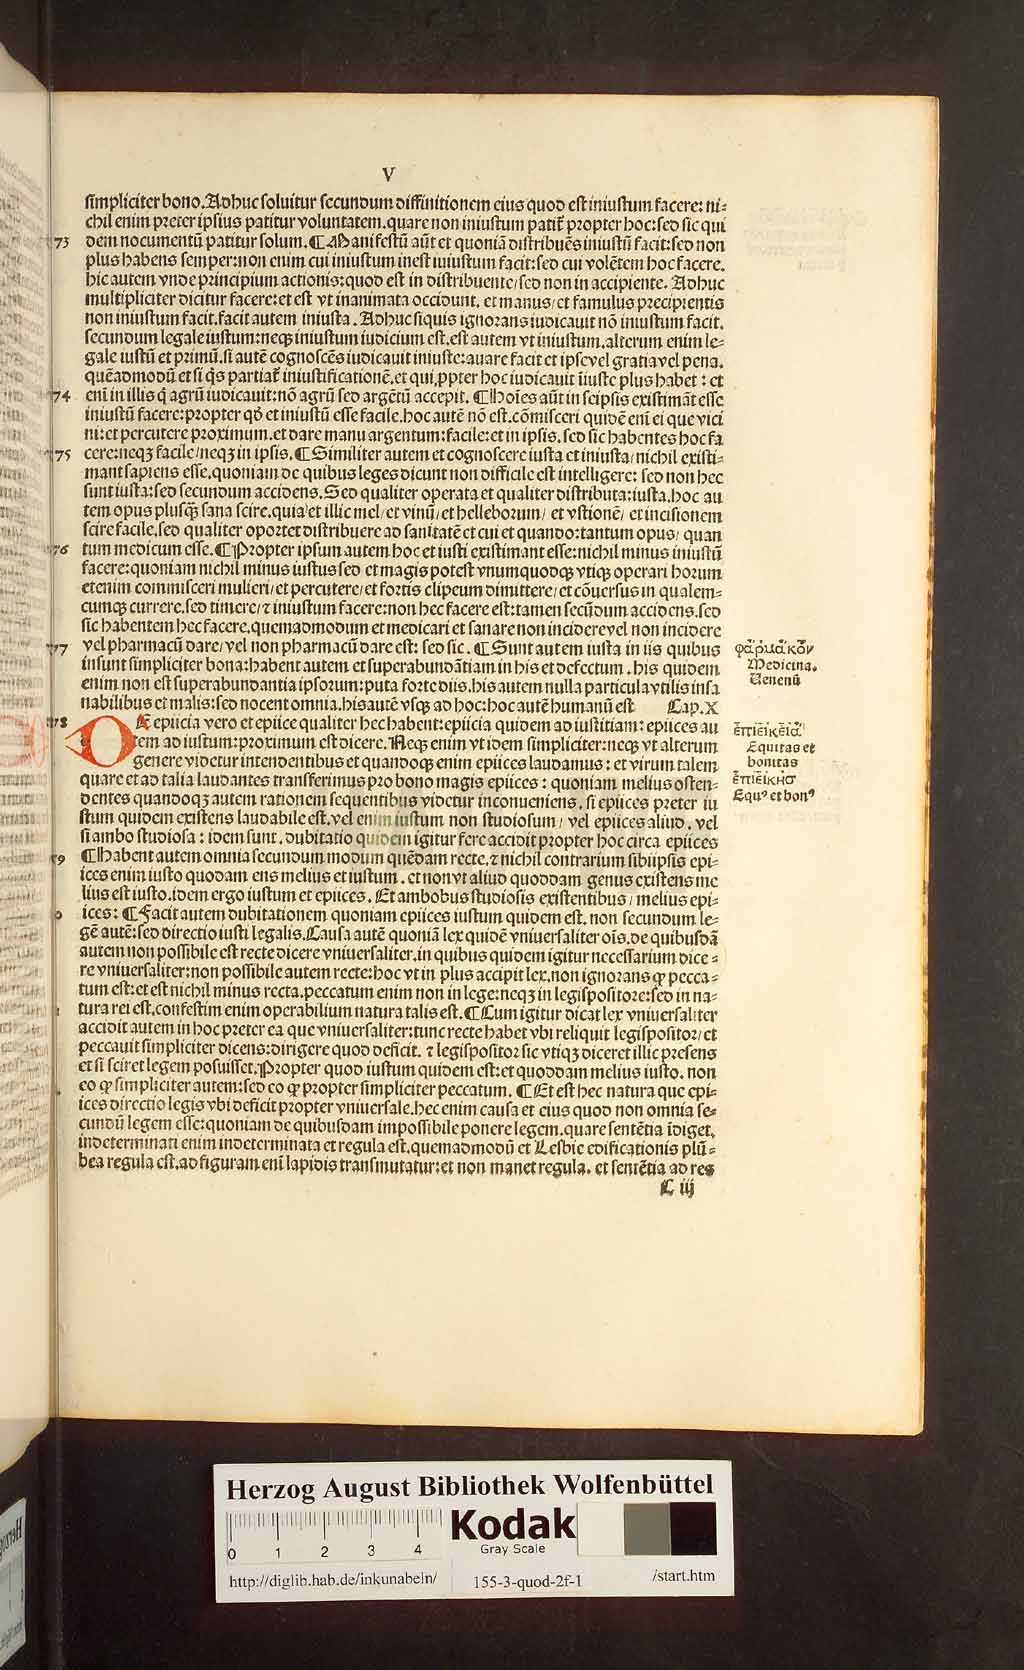 V
simpliciter bono. Adhuc soluitur secundum diffinitionem eius quod est iniustum facere: ni-
chil enim preter ipsius patitur voluntatem. quare non iniustum patit̃ propter hoc: sed sic qui
73 dem nocumentũ patitur solum. ¶ Manifestũ aũt et quoniã distribuẽs iniustũ facit: sed non
plus habens semper: non enim cui iniustum inest iniustum facit: sed cui volẽtem hoc facere.
hic autem vnde principium actionis: quod est in distribuente/ sed non in accipiente. Adhuc
multipliciter dicitur facere: et est vt inanimata occidunt. et manus/ et famulus precipientis
non iniustum facit. facit autem iniusta. Adhuc siquis ignorans iudicauit nõ iniustum facit.
secundum legale iustum: neqꝫ iniustum iudicium est. est autem vt iniustum. alterum enim le-
gale iustũ et primũ. si autẽ cognoscẽs iudicauit iniuste: auare facit et ipse vel gratia vel pena.
quẽadmodũ et si q̃s partiat̃ iniustificationẽ. et qui ꝓpter hoc iudicauit ĩiuste plus habet: et
74 eni in illis q̃ agrũ iudicauit: nõ agrũ sed argẽtũ accepit. ¶ Hoĩes aũt in seipsis existimãt esse
iniustũ facere: propter qđ et iniustũ esse facile. hoc autẽ nõ est. cõmisceri quidẽ eni ei que vici
ni: et percutere proximum. et dare manu argentum: facile: et in ipsis. sed sic habentes hoc fa
75 cere: neqꝫ facile/ neqꝫ in ipsis. ¶ Similiter autem et cognoscere iusta et iniusta/ nichil existi-
mant sapiens esse. quoniam de quibus leges dicunt non difficile est intelligere: sed non hec
sunt iusta: sed secundum accidens. Sed qualiter operata et qualiter distributa: iusta. hoc au
tem opus plusq̃ sana scire. quia et illic mel/ et vinũ/ et helleborum/ et vstionẽ/ et incisionem
scire facile. sed qualiter oportet distribuere ad sanitatẽ et cui et quando: tantum opus/ quan
76 tum medicum esse. ¶ Propter ipsum autem hoc et iusti existimant esse: nichil minus iniustũ
facere: quoniam nichil minus iustus sed et magis potest vnumquodqꝫ vtiqꝫ operari horum
etenim commisceri mulieri/ et percutere/ et fortis clipeum dimittere/ et cõuersus in qualem-
cumqꝫ currere. sed timere/ ⁊ iniustum facere: non hec facere est: tamen secũdum accidens. sed
sic habentem hec facere. quemadmodum et medicari et sanare non incidere vel non incidere
77 vel pharmacũ dare/ vel non pharmacũ dare est: sed sic. ¶ Sunt autem iusta in iis quibus
insunt simpliciter bona: habent autem et superabundãtiam in his et defectum. his quidem
enim non est superabundantia ipsorum: puta forte diis. his autem nulla particula vtilis insa
nabilibus et malis: sed nocent omnia. his autẽ vsqꝫ ad hoc: hoc autẽ humanũ est Cap. X
Medicina.
Venenũ
78 DE epiicia vero et epiice qualiter hec habent: epiicia quidem ad iustitiam: epiices au
tem ad iustum: proximum est dicere. Neqꝫ enim vt idem simpliciter: neqꝫ vt alterum
genere videtur intendentibus et quandoqꝫ enim epiices laudamus: et virum talem
quare et ad talia laudantes transferimus pro bono magis epiices: quoniam melius osten-
dentes quandoqꝫ autem rationem sequentibus videtur inconueniens. si epiices preter iu
stum quidem existens laudabile est. vel enim iustum non studiosum/ vel epiices aliud. vel
si ambo studiosa: idem sunt. dubitatio quidem igitur fere accidit propter hoc circa epiices
Equitas et
bonitas
Equꝰ et bonꝰ
9 ¶ Habent autem omnia secundum modum quẽdam recte. ⁊ nichil contrarium sibiipsis epi-
ices enim iusto quodam ens melius et iustum. et non vt aliud quoddam genus existens me
lius est iusto. idem ergo iustum et epiices. Et ambobus studiosis existentibus/ melius epi-
ices: ¶ Facit autem dubitationem quoniam epiices iustum quidem est. non secundum le-
gẽ autẽ: sed directio iusti legalis. Causa autẽ quoniã lex quidẽ vniuersaliter oĩs. de quibusdã
autem non possibile est recte dicere vniuersaliter. in quibus quidem igitur necessarium dice-
re vniuersaliter: non possibile autem recte: hoc vt in plus accipit lex. non ignorans ꝙ pecca-
tum est: et est nichil minus recta. peccatum enim non in lege: neqꝫ in legispositore: sed in na-
tura rei est. confestim enim operabilium natura talis est. ¶ Cum igitur dicat lex vniuersaliter
accidit autem in hoc preter ea que vniuersaliter: tunc recte habet vbi reliquit legispositor/ et
peccauit simpliciter dicens: dirigere quod deficit. ⁊ legispositor sic vtiqꝫ diceret illic presens
et si sciret legem posuisset. Propter quod iustum quidem est: et quoddam melius iusto. non
eo ꝙ simpliciter autem: sed eo ꝙ propter simpliciter peccatum. ¶ Et est hec natura que epi-
ices directio legis vbi deficit propter vniuersale. hec enim causa et eius quod non omnia se-
cundũ legem esse: quoniam de quibusdam impossibile ponere legem. quare sentẽtia ĩdiget.
indeterminati enim indeterminata et regula est. quemadmodũ et Lesbie edificationis plũ-
bea regula est. ad figuram eni lapidis transmutatur: et non manet regula. et sentẽtia ad res
L iij
Herzog August Bibliothek Wolfenbüttel
0 1 2 3 4
Kodak
Gray Scale
http://diglib.hab.de/inkunabeln/ 155-3-quod-2f-1 /start.htm